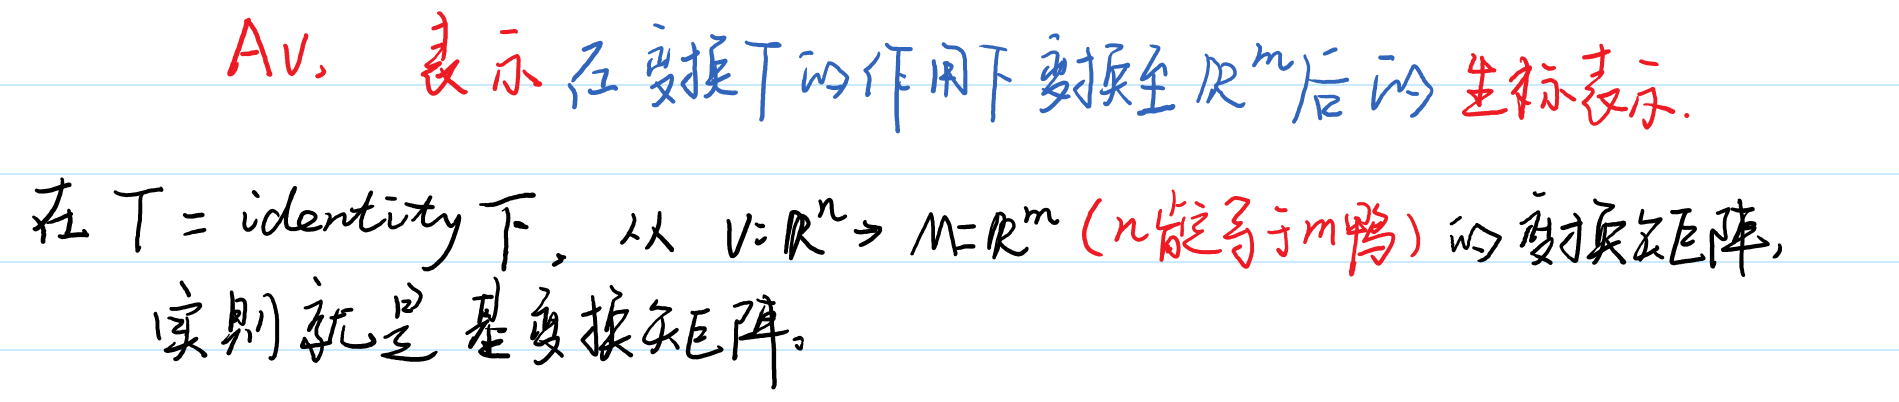 Av, 表示在变换T的作用下变换至R^m后的坐标表示.
在 T = identity下, 从 V:R^n → M=R^m (n能等于m鸭) 的变换矩阵,
实则就是基变换矩阵。